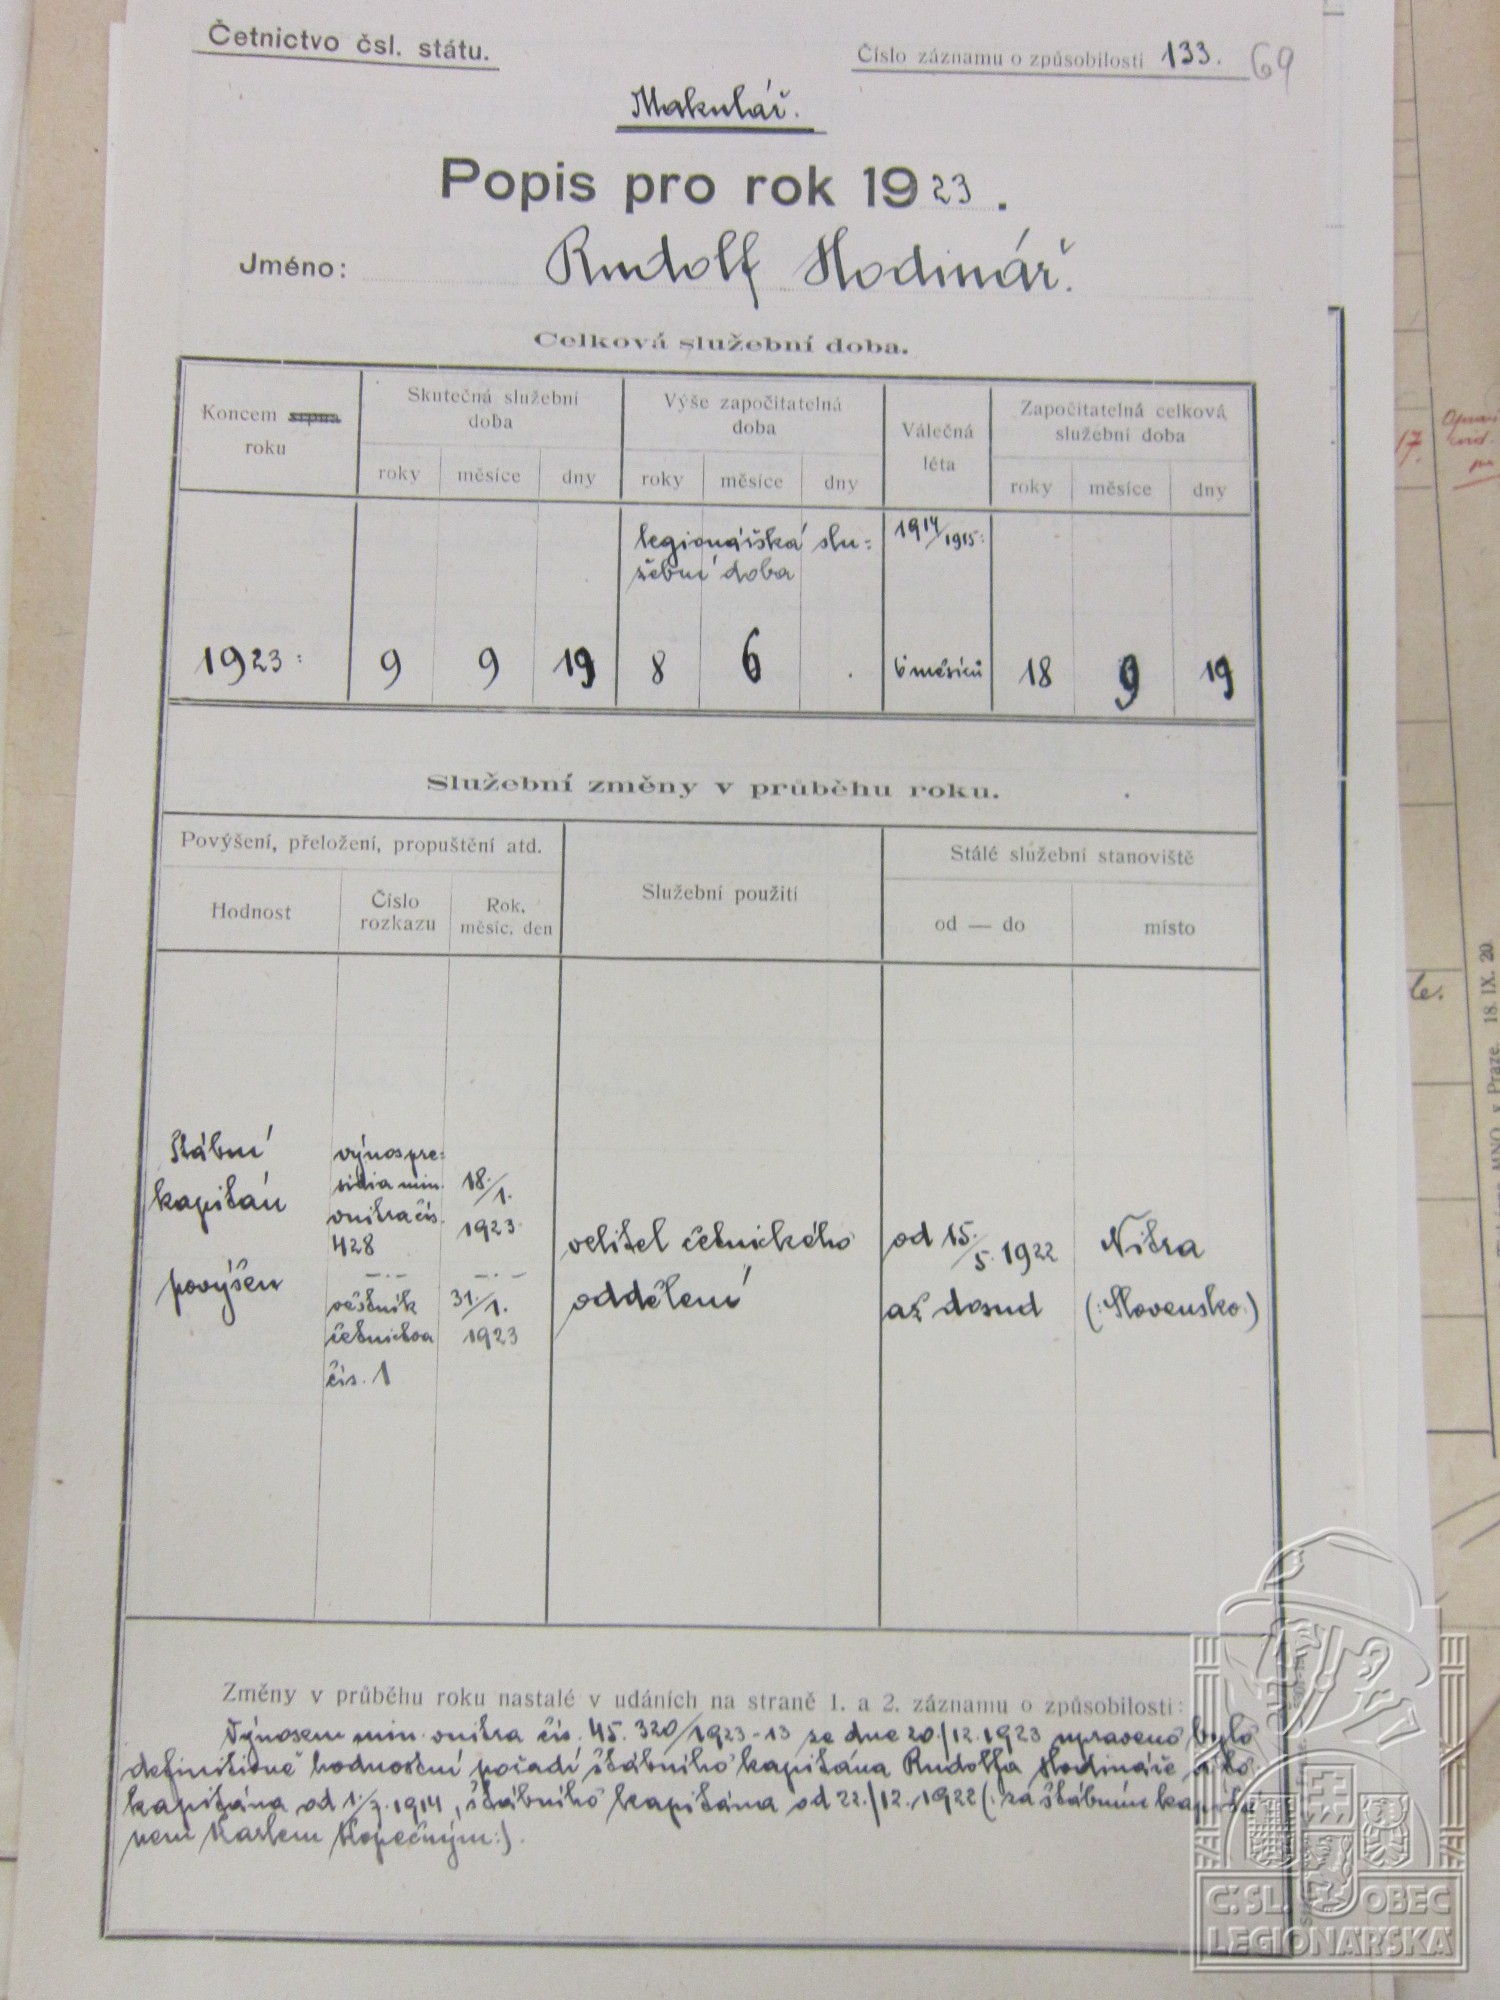 Četnictvo čsl. státu.
Číslo záznamu o způsobilosti 133. 69
Makulář.
Popis pro rok 1923.
Jméno: Rudolf Hodinář.
Celková služební doba.
Koncem srpna roku
Skutečná služební doba
Výše započitatelná doba
Válečná léta
Započitatelná celková služební doba
roky měsíce dny roky měsíce dny roky měsíce dny
legionářská slu=
žební doba
1914/1915:
1923: 9 9 19 8 6 . 6 měsíců 18 9 19
Služební změny v průběhu roku.
Povýšení, přeložení, propuštění atd.
Služební použití
Stálé služební stanoviště
Hodnost
Číslo rozkazu
Rok, měsíc, den
od — do
místo
Štábní
kapitán
povýšen
výnos pre=
sidia min.
vnitra čís.
428
—.—
věstník
četnictva
čís. 1
18./1.
1923
—.—
31./1.
1923
velitel četnického
oddělení
od 15./5. 1922
až dosud
Nitra
(:Slovensko:)
Změny v průběhu roku nastalé v udáních na straně 1. a 2. záznamu o způsobilosti:
Výnosem min. vnitra čís. 45.320/1923-13 ze dne 20./12.1923 upraveno bylo
definitivně hodnostní pořadí štábního kapitána Rudolfa Hodináře
kapitána od 1./7.1914, štábního kapitána od 22./12.1922 (:za štábním kapitá
nem Karlem Kopečným:).
17.
le.
MNO. v Praze. 18. IX. 20.
Č.SL. OBEC
LEGIONÁŘSKÁ